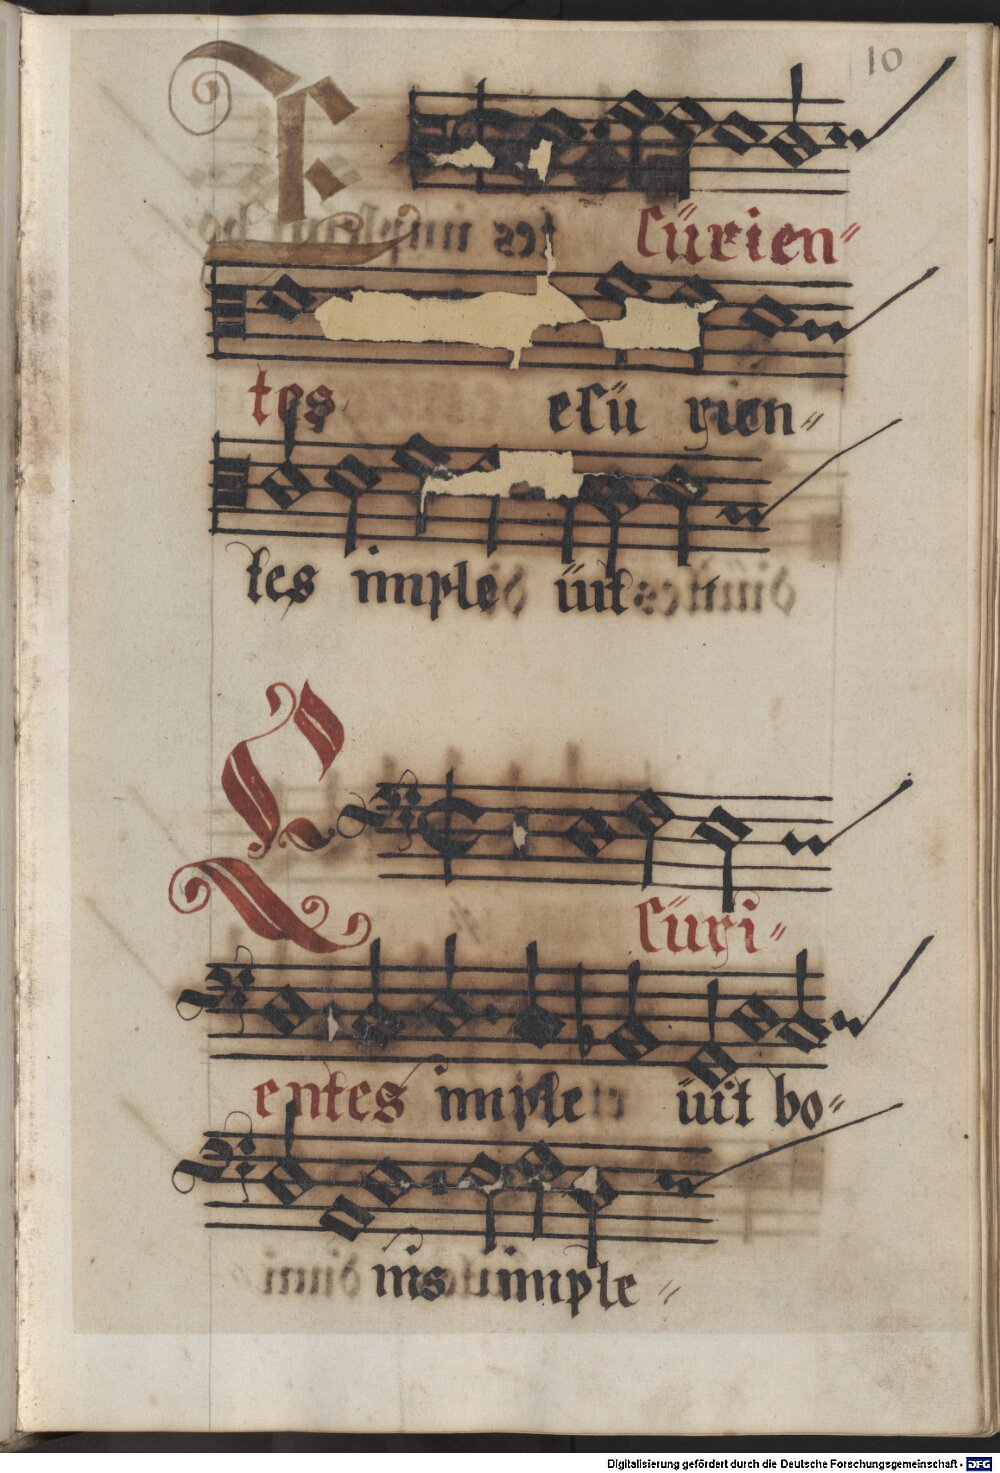 10
Esürien
tes esü rien
tes imple üit
Esüri
entes imple üit bo
nis imple
Digitalisierung gefördert durch die Deutsche Forschungsgemeinschaft - DFG